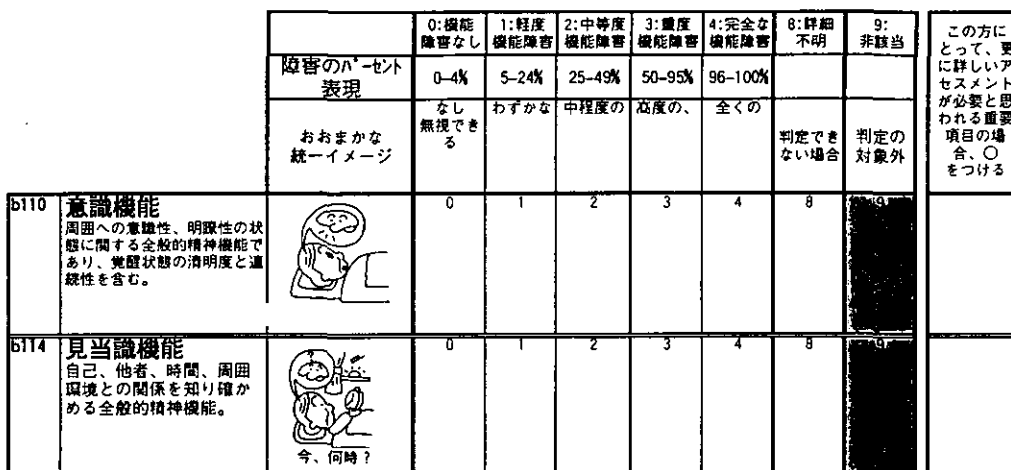 0:機能
障害なし
1:軽度
機能障害
2:中等度
機能障害
3:重度
機能障害
4:完全な
機能障害
8:詳細
不明
9:
非該当
この方に
とって、更
に詳しいア
セスメント
が必要と思
われる重要
項目の場
合、〇
をつける
障害のパーセント
表現
0-4%
5-24%
25-49%
50-95%
96-100%
おおまかな
統一イメージ
なし
無視でき
る
わずかな
中程度の
高度の、
全くの
判定でき
ない場合
判定の
対象外
b110
意識機能
周囲への意識性、明瞭性の状
態に関する全般的精神機能で
あり、覚醒状態の清明度と連
続性を含む。
0 1 2 3 4 8 9
b114
見当識機能
自己、他者、時間、周囲
環境との関係を知り確か
める全般的精神機能。
今、何時?
0 1 2 3 4 8 9